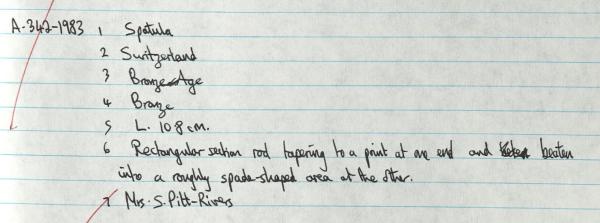 A-342-1983 1 Spatula
2 Switzerland
3 Bronze Age
4 Bronze
5 L. 10.8 cm.
6 Rectangular section rod tapering to a point at one end and beaten
into a roughly spade-shaped area at the other.
7 Mrs. S. Pitt-Rivers